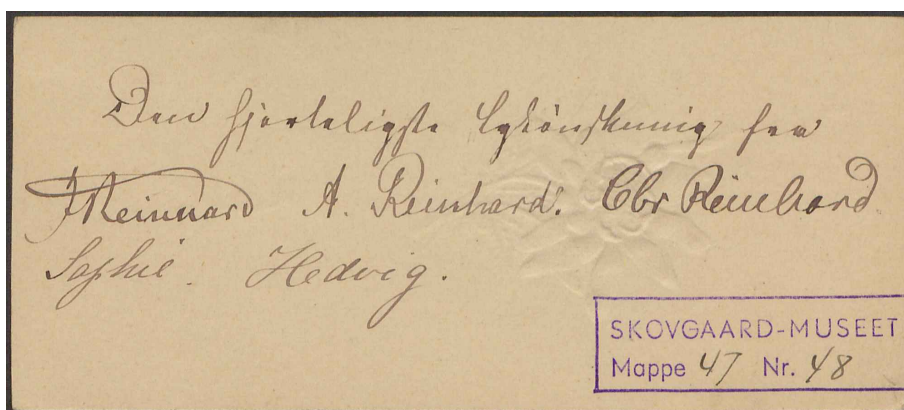 Den hjerteligste Lykönskning fra
JReinhard A. Reinhard. Chr Reinhard
Sophie. Hedvig.
SKOVGAARD-MUSEET
Mappe 47 Nr. 48